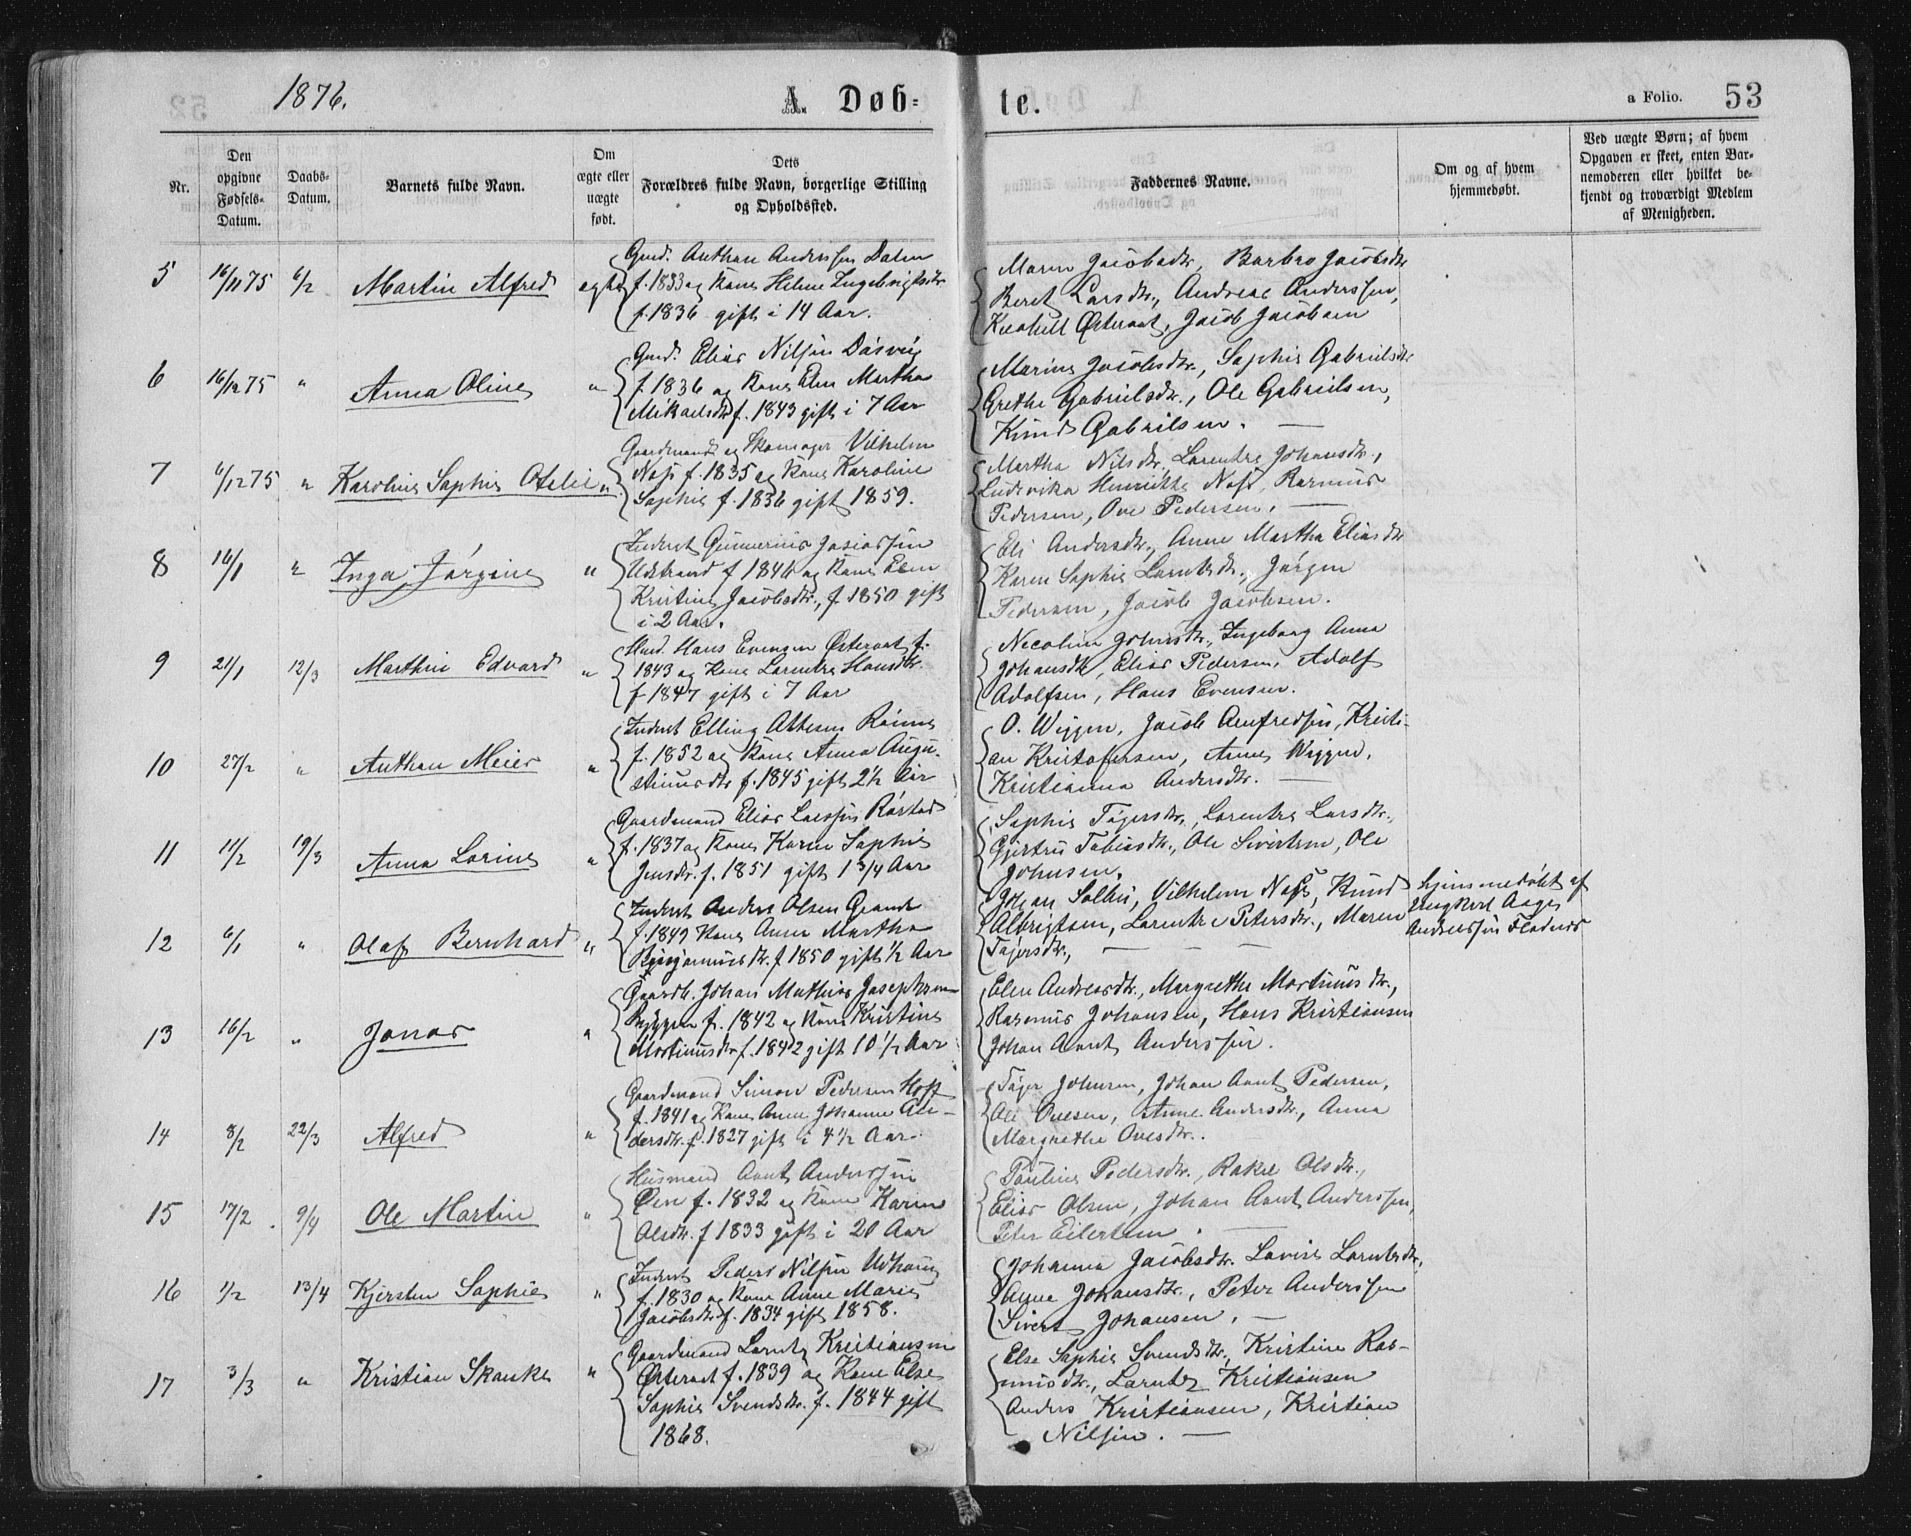 1876.
A. Døb=
te.
a Folio.
53
Nr.
Den opgivne Fødsels-Datum.
Daabs-Datum.
Barnets fulde Navn.
Om ægte eller uægte født.
Dets Forældres fulde Navn, borgerlige Stilling og Opholdssted.
Faddernes Navne.
Om og af hvem hjemmedøbt.
Ved uægte Børn; af hvem Opgaven er skeet, enten Barnemoderen eller hvilket bekjendt og troværdigt Medlem af Menigheden.
5 16/11 75 6/2 Martin Alfred ægte
Gmd. Anthon Anderssen Dalen
f. 1833 og Kone Heline Ingebrigtsdtr
f. 1836 gift i 14 Aar.
Maren Jacobsdtr, Barbro Jacobsdtr
Beret Larsdtr., Andreas Anderssen,
Østeraat, Jacob Jacobsen
6 16/12 75 " Anna Oline "
Gmd. Elias Nilsen Dåsvig
f. 1836 og Kone Elen Martha
Mikaelsdtr f. 1843 gift i 7 Aar
Marine Jacobsdtr., Sophie Gabrielsdtr
Grethe Gabrielsdtr., Ole Gabrielsen,
Knud Gabrielsen. —
7 6/12 75 " Karoline Sophie Otelie "
Gaardmand og Skomager Vilhelm
Noss f. 1835 og Kone Karoline
Sophie f. 1836 gift 1859.
Martha Nilsdtr., Larentze Johansdtr.,
Ludevika Henriette Noss, Rasmus
Pedersen, Ove Pedersen. —
8 16/1 " Inga Jørgine "
Inderst Gunnerius Josiassen
Udstrand f. 1846 og Kone Elen
Kristine Jacobsdtr., f. 1850 gift
i 2 Aar.
Eli Andersdtr., Anne Martha Eliasdtr
Karen Sophie Larntsdtr., Jørgen
Pedersen, Jacob Jacobsen.
9 21/1 12/3 Marthin Edvard "
Hmd. Hans Evensen Østeraat f.
1843 og Kone Larentze Hansdtr.
f. 1847 gift i 7 Aar
Necoline Johnsdtr., Ingeborg Anna
Johansdtr, Elias Pedersen, Adolf
Adolfsen, Hans Evensen.
10 27/2 " Anthon Meier "
Inderst Elling Rønne
f. 1852 og Kone Anna Augu-
stinusdtr f. 1845 gift 2½ Aar
O. Wiggen, Jacob Arnfredsen, Kristi-
an Kristofersen, Anne Wiggen,
Kristianna Andersdtr. —
11 11/2 19/3 Anna Lorine "
Gaardmand Elias Larssen Rørstad
f. 1837 og Kone Karen Sophie
Jensdtr. f. 1851 gift 1 3/4 Aar
Sophie Tøgersdtr., Larentze Larsdtr.,
Gjertru Tobiasdtr., Ole Sivertsen, Ole
Johnsen.
12 6/1 " Olaf Bernhard "
Inderst Anders Olsen Grande
f. 1849 Kone Anne Martha
f. 1850 gift ½ Aar
Johan Solli, Vilhelm Noss, Knud
Albrigtsen, Larentze Petersdtr., Maren
Tøgersdtr., — — —
hjemmedøbt af
Ungkarl Aage
Anderssen Fladnes
13 16/2 " Jonas "
Gaardb. Johan Mathias Josephsen
f. 1842 og Kone Kristine
Mortinusdtr f. 1842 gift 10½ Aar
Elen Andreasdtr., Margrethe Mortinusdtr.,
Rasmus Johansen, Hans Kristiansen
Johan Arnt Anderssen.
14 8/2 22/3 Alfred "
Gaardmand Simon Pedersen Hoff
f. 1841 og Kone Anne Johanna An-
dersdtr. f. 1827 gift i 4½ Aar.
Tøger Johnsen, Johan Arnt Pedersen,
Ole Ovesen, Anne Andersdtr., Anna
Margrethe Ovesdtr.
15 17/2 9/4 Ole Martin "
Husmand Arnt Anderssen
Øien f. 1832 og Kone Karen
Olsdtr. f. 1833 gift i 20 Aar
Pauline Pedersdtr., Rakel Olsdtr.,
Elias Olsen, Johan Arnt Anderssen,
Peter Eilertsen. —
16 1/2 13/4 Kjersten Sophie "
Inderst Peder Nilsen Udhaug
f. 1830 og Kone Anne Marie
Jacobsdtr. f. 1834 gift 1858.
Johanna Jacobsdtr. Lovise Larntsdtr.
Anne Johansdtr., Peter Anderssen
Sivert Johansen. —
17 3/3 " Kristian Skanke "
Gaardmand Larntz Kristiansen
Østeraat f. 1839 og Kone Else
Sophie Svendsdtr. f. 1844 gift
1868.
Else Sophie Svendsdtr., Kristine Ras-
musdtr., Larntz Kristiansen
Anders Kristiansen, Kristian
Nilsen. —